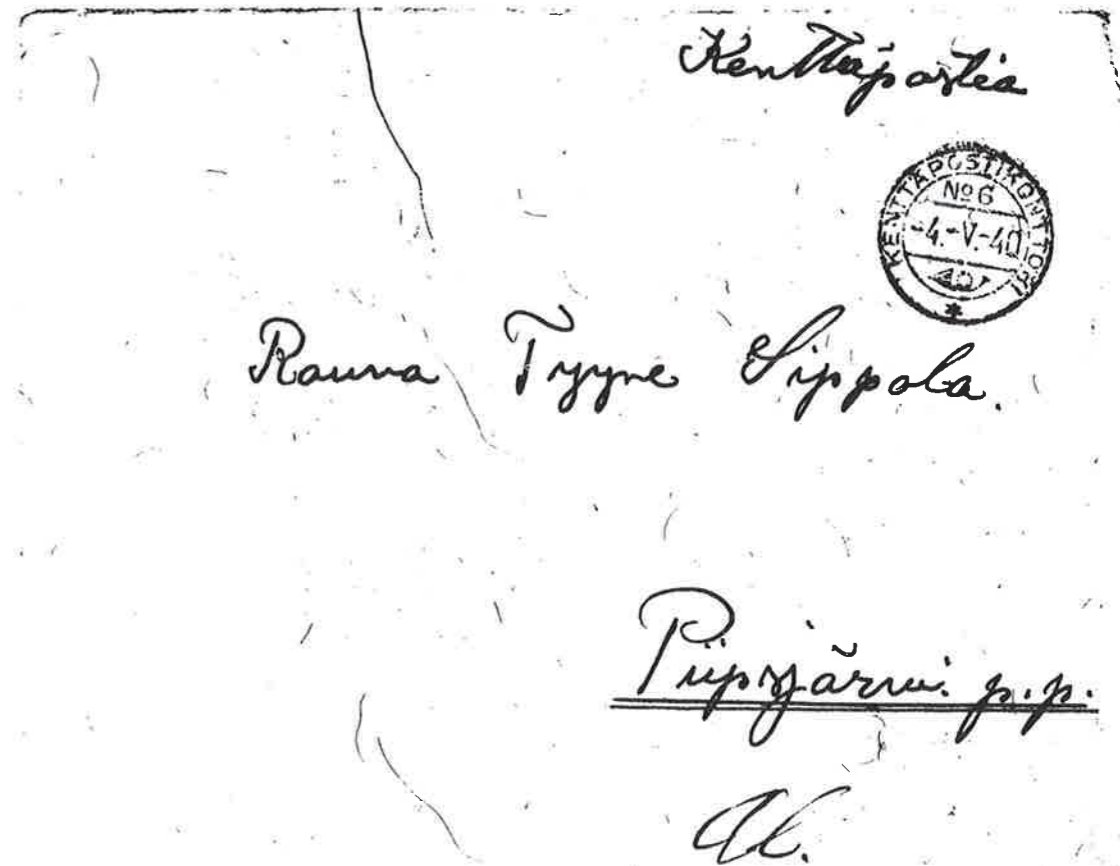 Kenttäpostia
KENTTÄPOSTIKONTTORI
№6
-4.-V.-40
*
Rauna Tyyne Sippola.
Piipsjärvi. p.p.